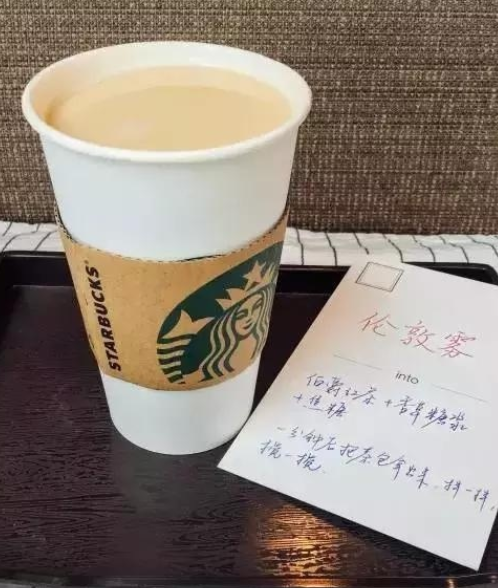 STARBUCKS
伦敦雾
into
伯爵红茶+香草糖水
+焦糖
一分钟后把茶包拿出来,抖一抖,
搅一搅.